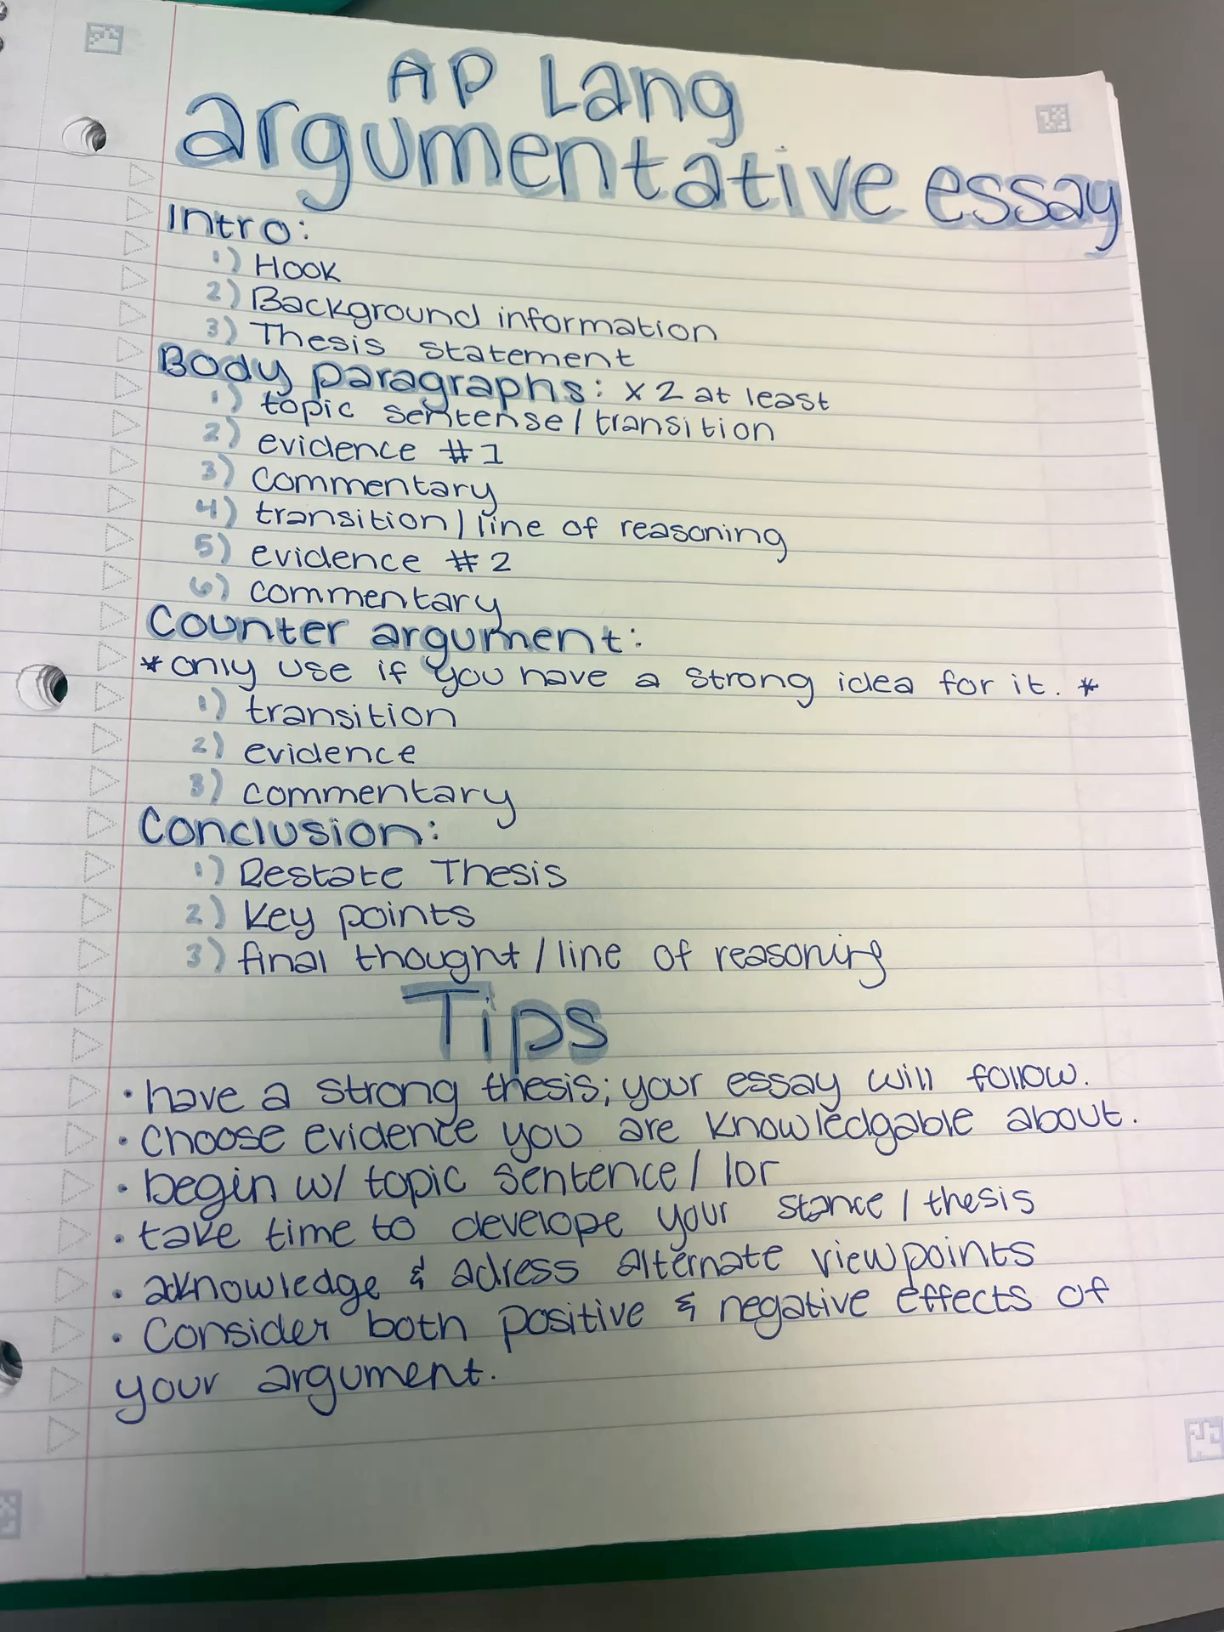 AP Lang
argumentative essay
Intro:
1) Hook
2) Background information
3) Thesis statement
Body paragraphs: x 2 at least
1) topic sentense / transition
2) evidence #1
3) commentary
4) transition / line of reasoning
5) evidence #2
6) commentary
Counter argument:
*only use if you have a strong idea for it. *
1) transition
2) evidence
3) commentary
Conclusion:
1) Restate Thesis
2) Key points
3) final thought / line of reasoning
Tips
• have a strong thesis; your essay will follow.
• choose evidence you are knowledgable about.
• begin w/ topic sentence / lor
• take time to develope your stance / thesis
• aknowledge & adress alternate viewpoints
• Consider both positive & negative effects of
your argument.